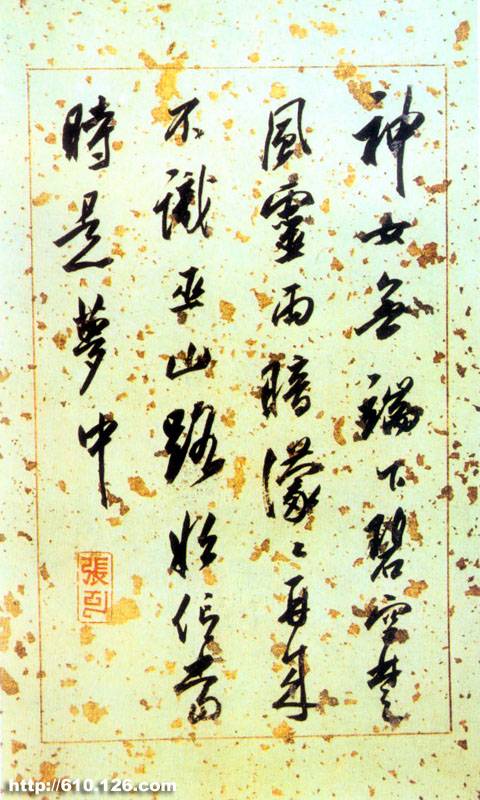 神女無端下碧空楚
風靈雨暗濛〻再來
不識巫山路始信當
時是夢中
張
http://610.126.com